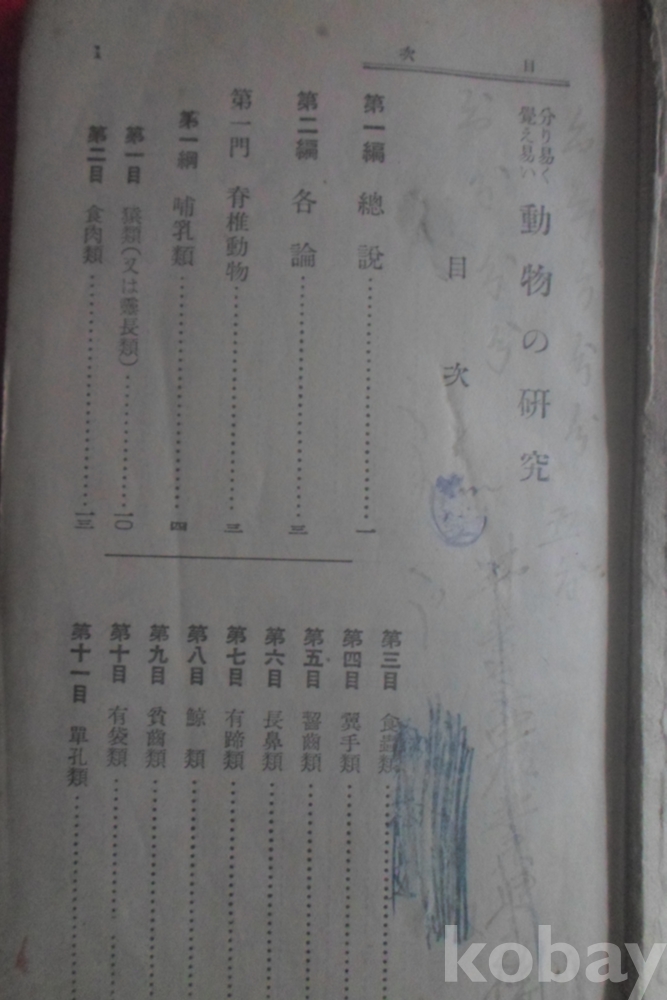 目次
1
分り易く
覺え易い
動物の研究
目次
第一編 總說 一
第二編 各論 三
第一門 脊椎動物 三
第一綱 哺乳類 四
第一目 猿類(又は靈長類) 一〇
第二目 食肉類 一三
第三目 食蟲類
第四目 翼手類
第五目 齧齒類
第六目 長鼻類
第七目 有蹄類
第八目 鯨類
第九目 貧齒類
第十目 有袋類
第十一目 單孔類
kobay